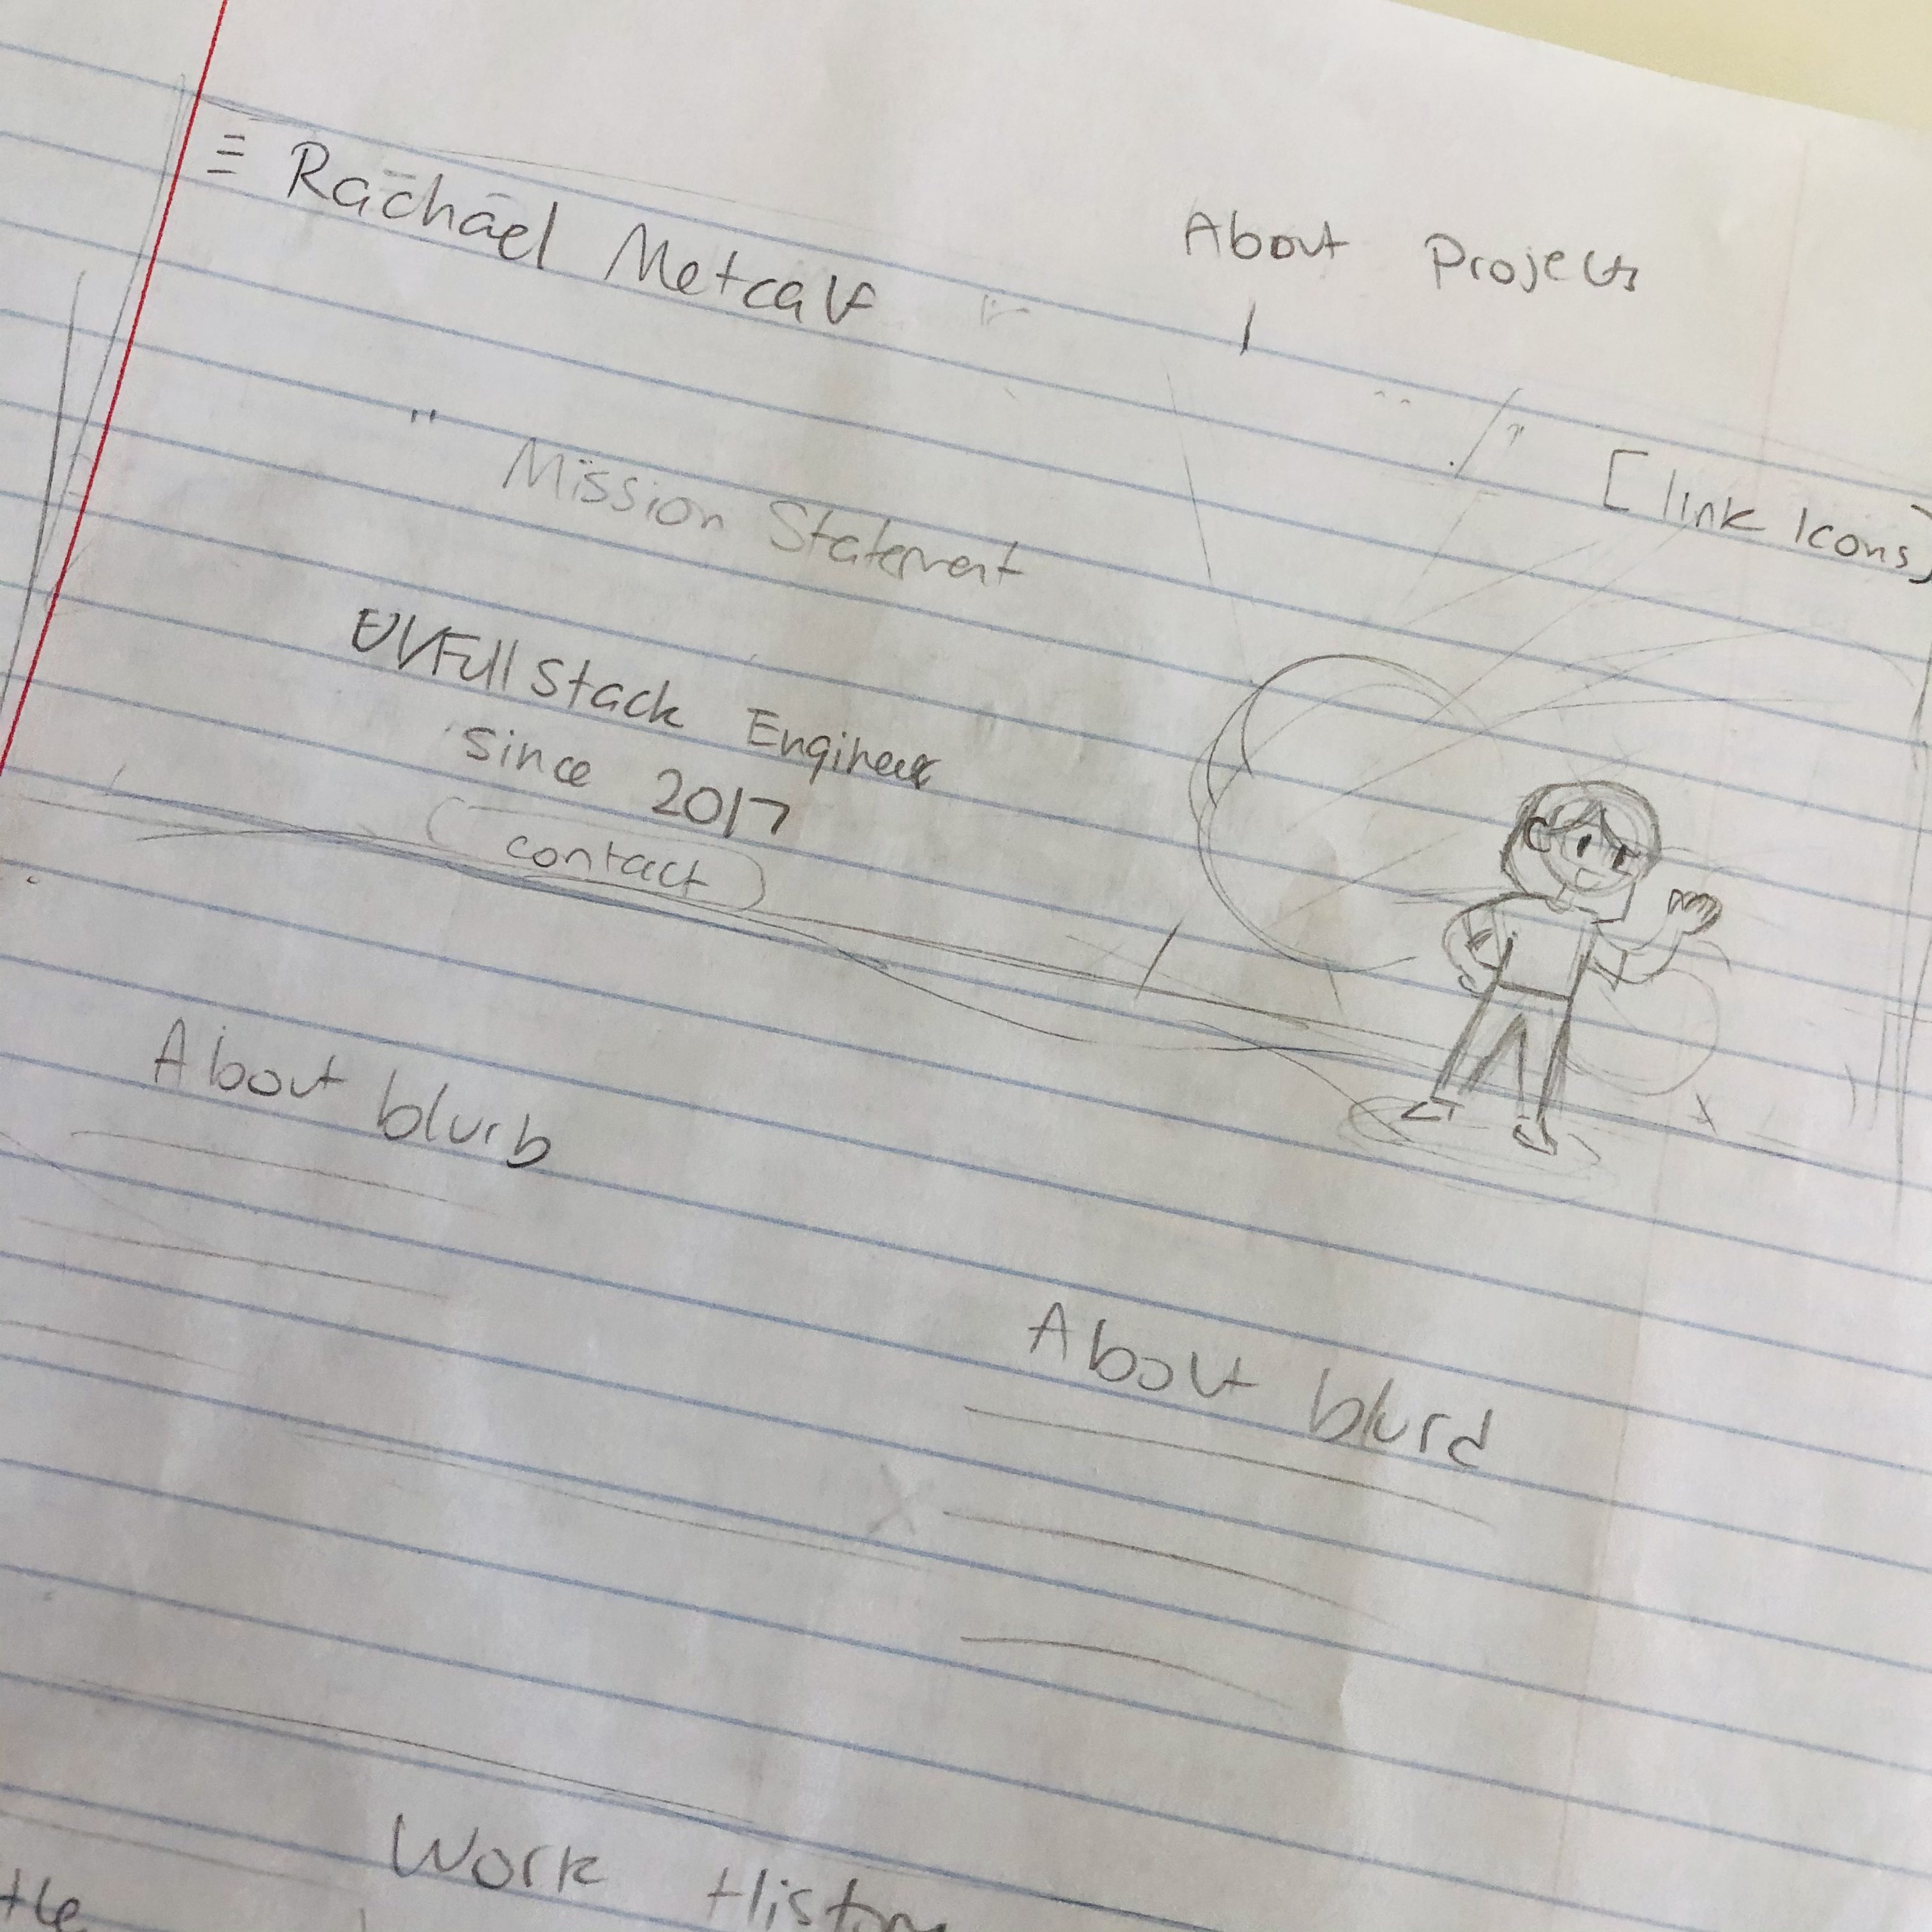 Rachael Metcalf
About Projects
[link Icons]
Mission Statement
UI/Full Stack Engineer
since 2017
contact
About blurb
About blurd
Work History